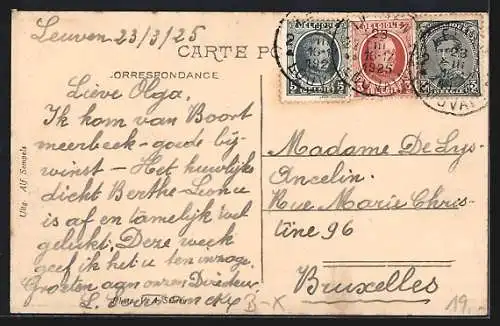 Leuven 23/3/25
CARTE PO
CORRESPONDANCE
Lieve Olga.
Ik kom van Boort
meerbeek – goede bij
winst – Het huwelijks
dicht Berthe-Leon is
is af en tamelijk wel
gelukt. Deze week
geef ik het u ten
Groeten aan onzen Directeur
L.
Uitg. Alf. Sampels
BELGIQUE
23
III
1925
Madame De Lys-
Ancelin.
Rue Marie Chris-
tine 96
Bruxelles
B-X
19.-